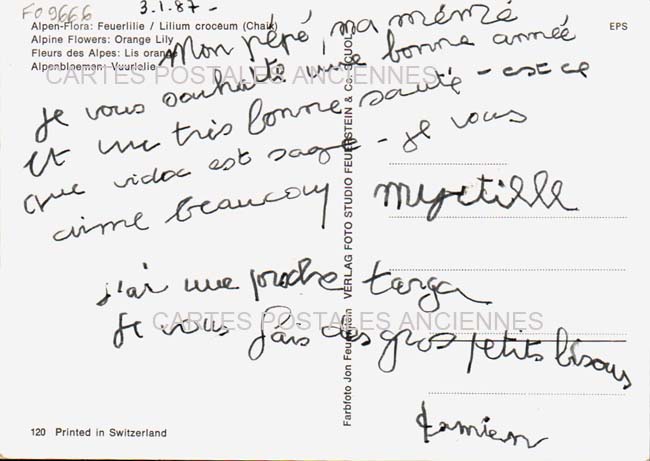 FO 9666
3.1.87-
Alpen-Flora: Feuerlilie / Lilium croceum (Chaix)
Alpine Flowers: Orange Lily
Fleurs des Alpes: Lis orangé
Alpenbloemen: Vuurlelie
EPS
Mon pépé, ma mémé
je vous souhaite une bonne année
et une très bonne santé - est ce
que vidoc est sage - je vous
aime beaucoup
myrtille
j'ai une porche targa
je vous fais des gros petits bisous
damien
CARTES POSTALES ANCIENNES
CARTES POSTALES ANCIENNES
Farbfoto Jon Feuerstein VERLAG FOTO STUDIO FEUERSTEIN & Co. SCUOL
120 Printed in Switzerland